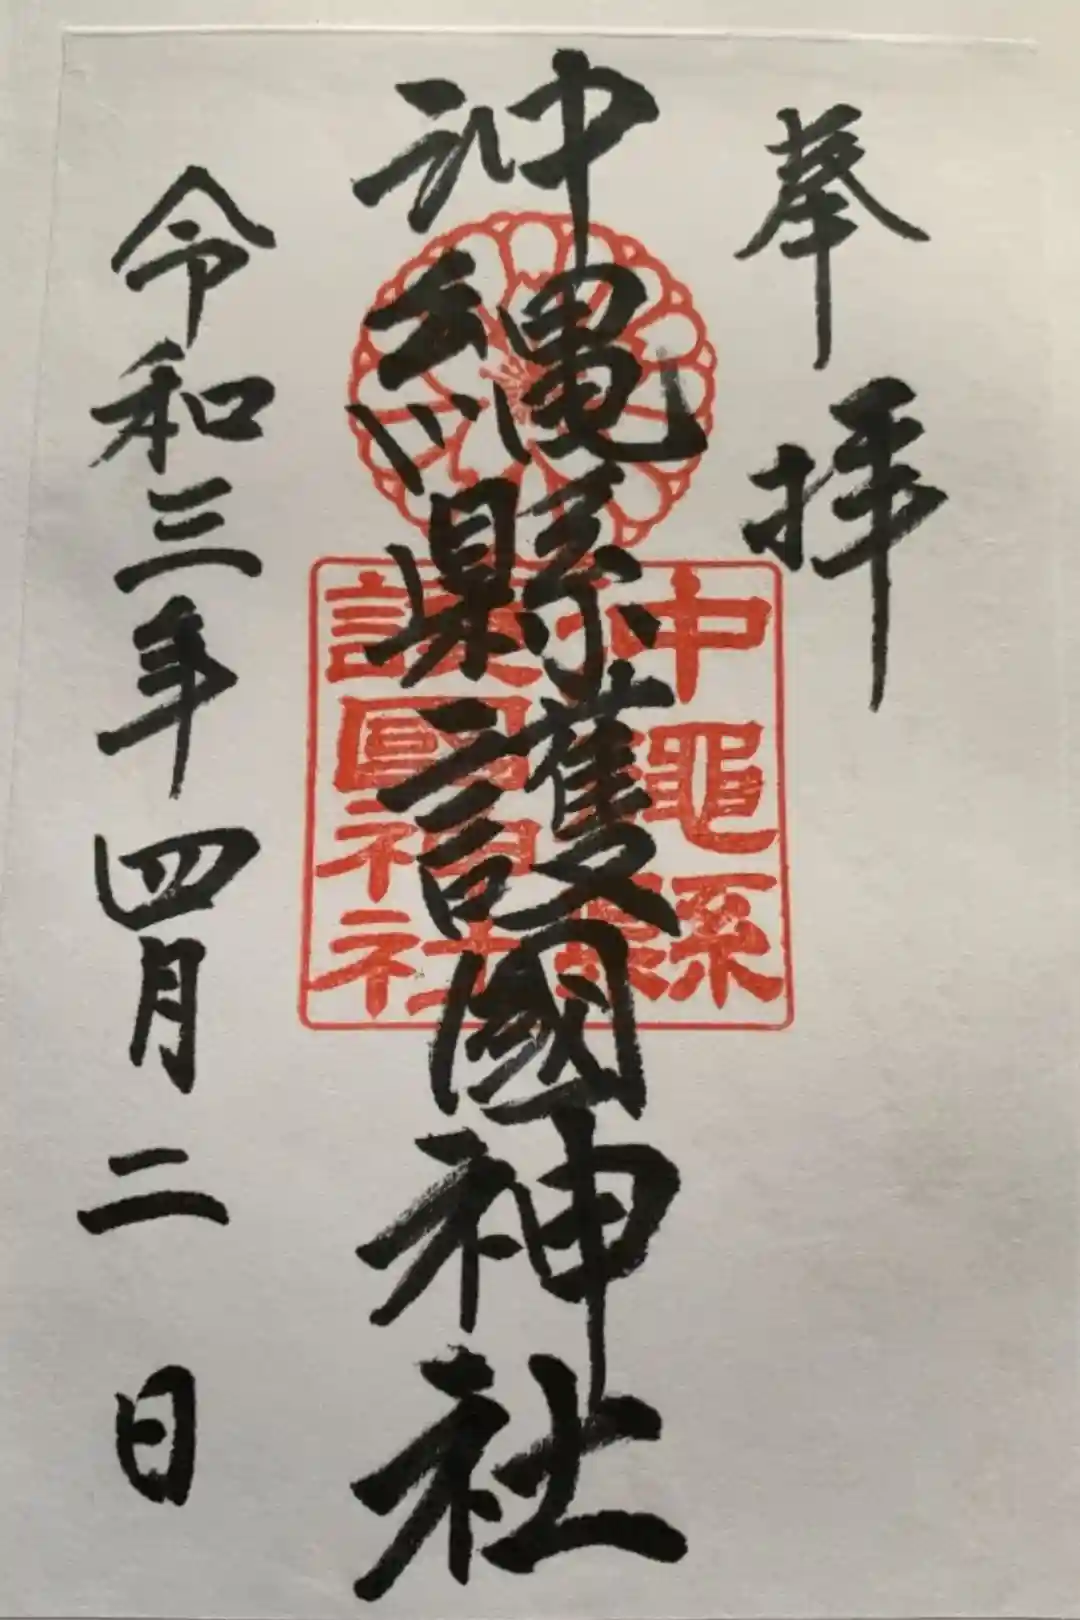 奉拝
沖縄縣護國神社
沖縄縣
護國神社
令和三年四月二日